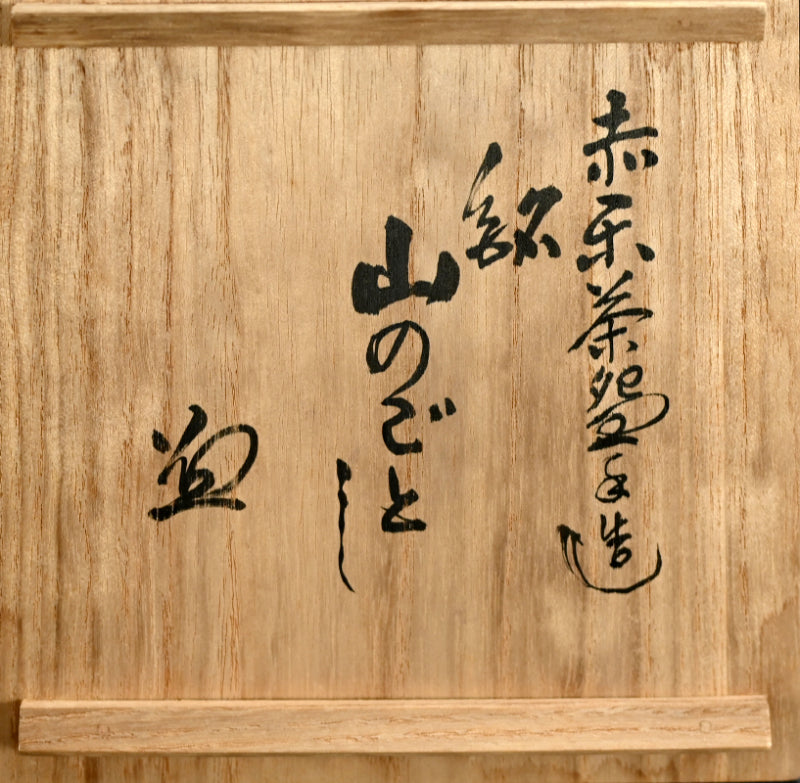 赤楽茶盌手造
銘
山のごとし